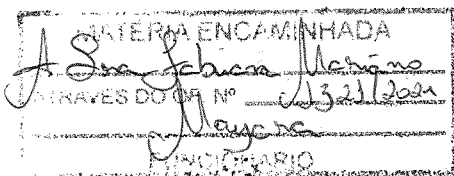 MATÉRIA ENCAMINHADA
A Sra Fabiana Mariano
ATRAVES DO OF. Nº 1321/2021
Mayara
FUNCIONARIO